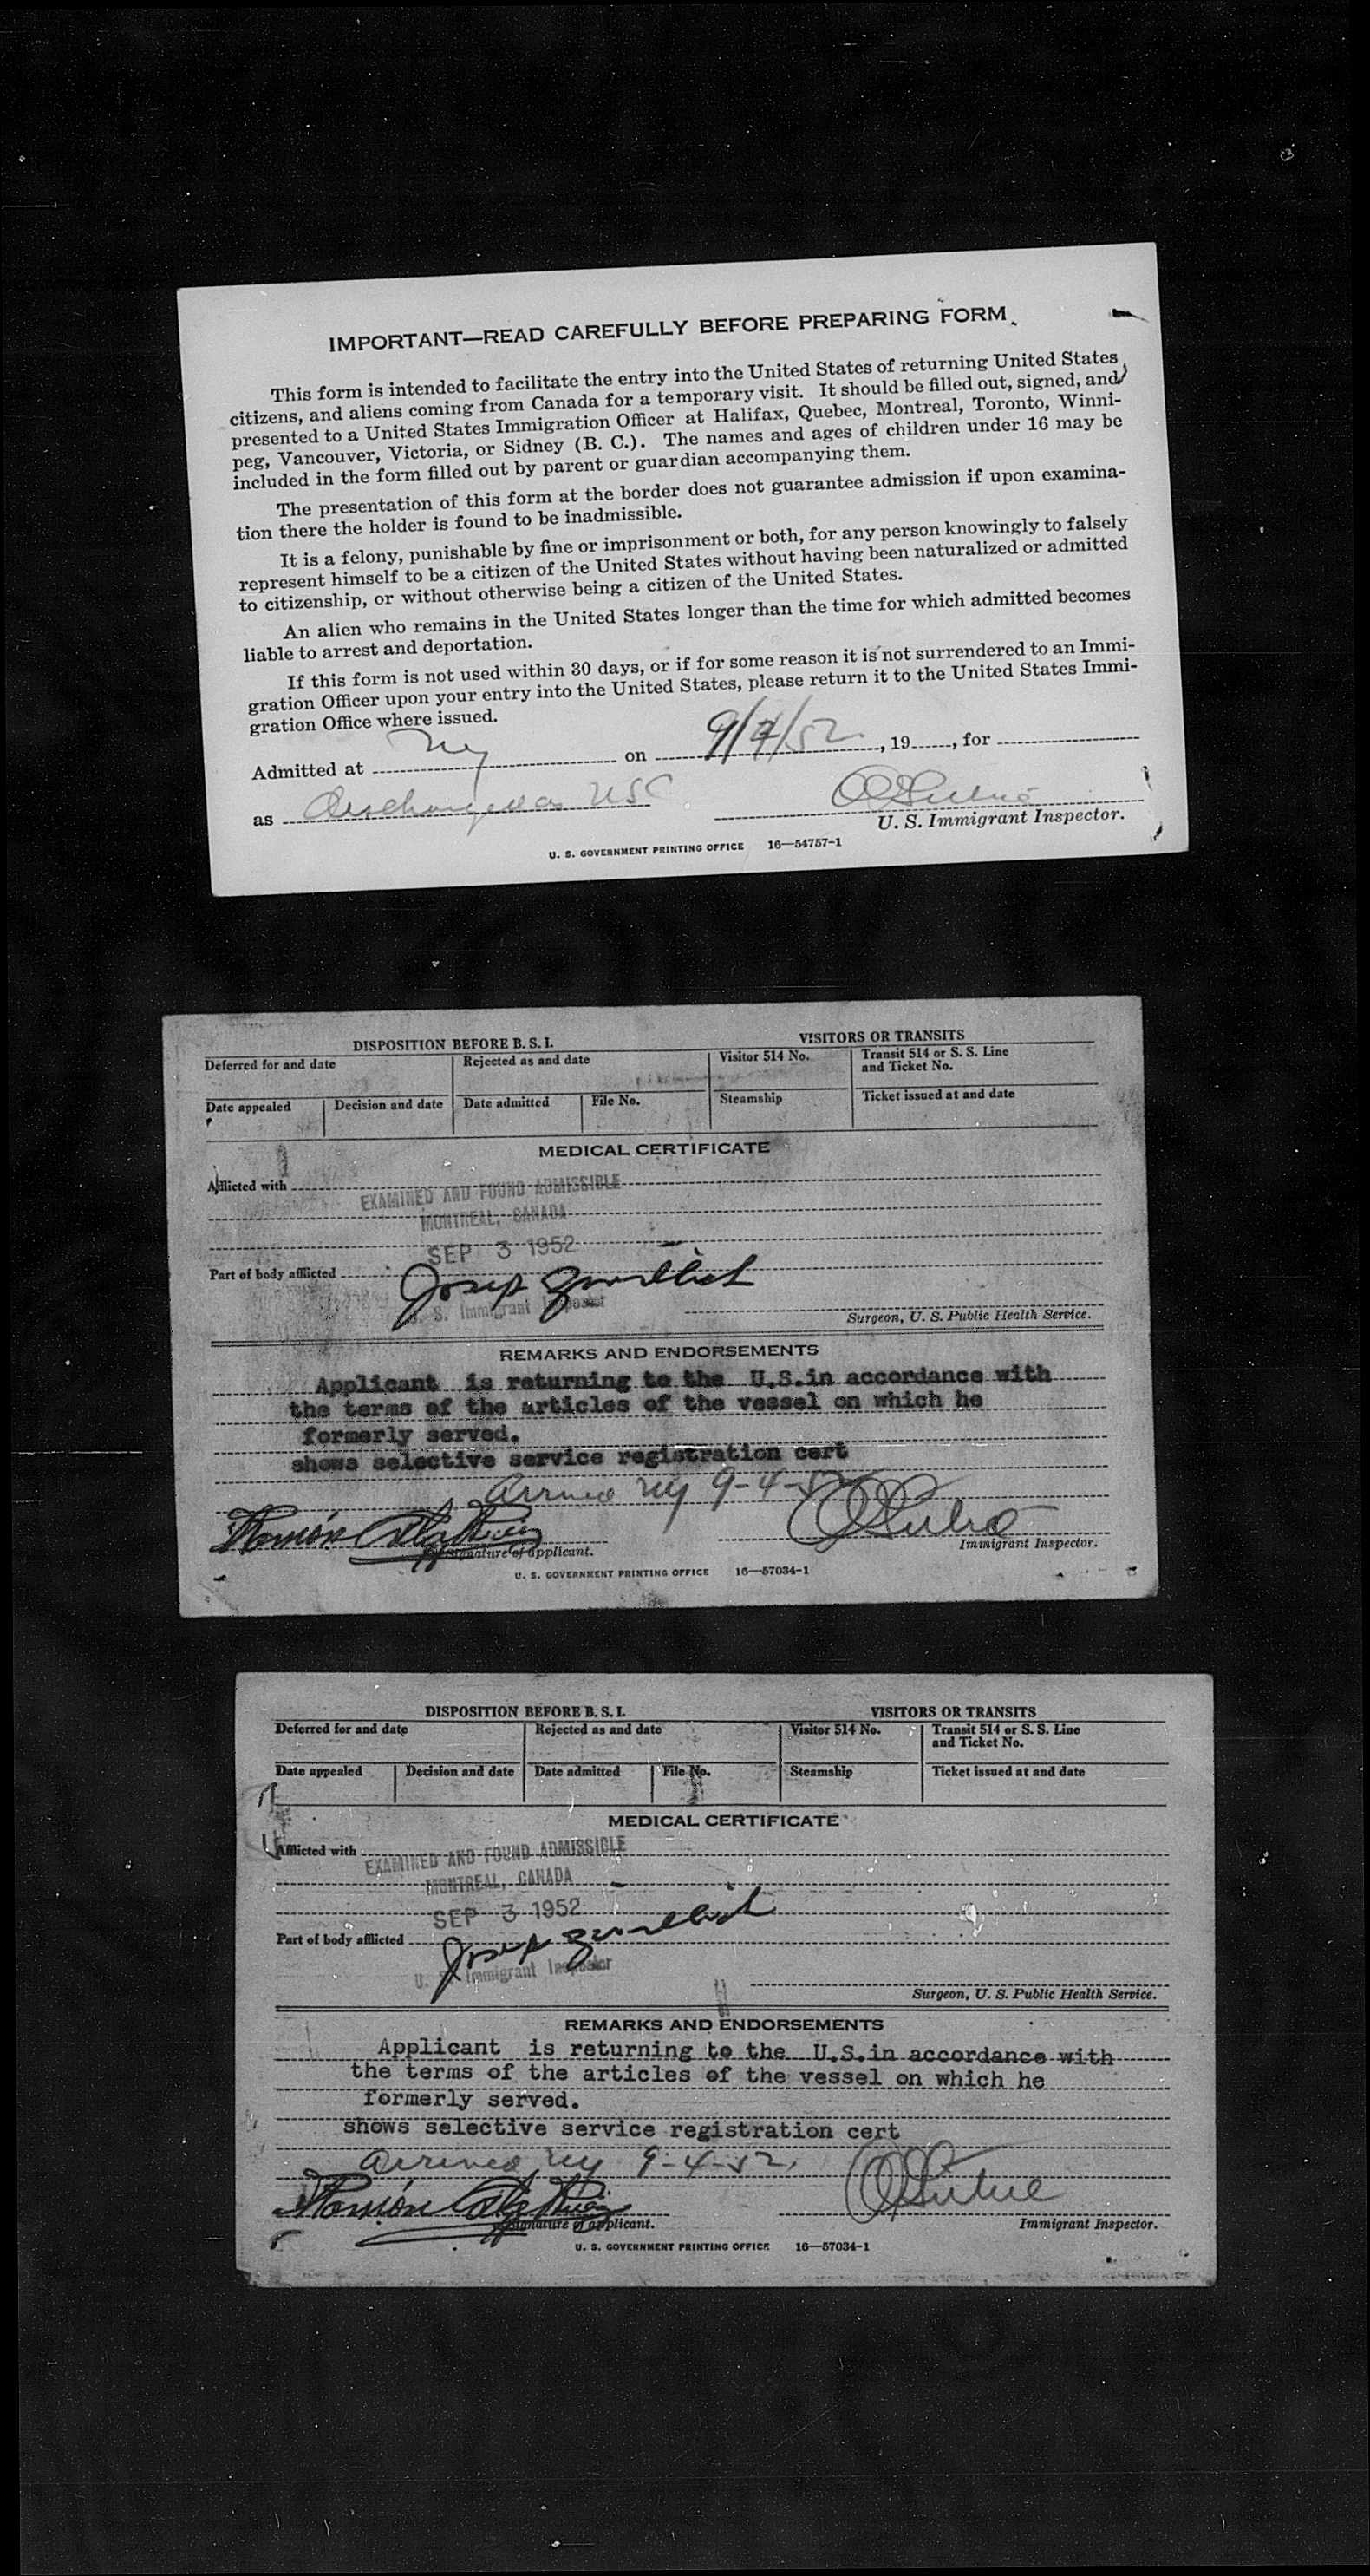 IMPORTANT—READ CAREFULLY BEFORE PREPARING FORM
This form is intended to facilitate the entry into the United States of returning United States
citizens, and aliens coming from Canada for a temporary visit. It should be filled out, signed, and
presented to a United States Immigration Officer at Halifax, Quebec, Montreal, Toronto, Winni-
peg, Vancouver, Victoria, or Sidney (B. C.). The names and ages of children under 16 may be
included in the form filled out by parent or guardian accompanying them.
The presentation of this form at the border does not guarantee admission if upon examina-
tion there the holder is found to be inadmissible.
It is a felony, punishable by fine or imprisonment or both, for any person knowingly to falsely
represent himself to be a citizen of the United States without having been naturalized or admitted
to citizenship, or without otherwise being a citizen of the United States.
An alien who remains in the United States longer than the time for which admitted becomes
liable to arrest and deportation.
If this form is not used within 30 days, or if for some reason it is not surrendered to an Immi-
gration Officer upon your entry into the United States, please return it to the United States Immi-
gration Office where issued.
Admitted at NY on 9/4/52, 19, for
as USC
U. S. Immigrant Inspector.
U. S. GOVERNMENT PRINTING OFFICE 16—54757-1
DISPOSITION BEFORE B. S. I. VISITORS OR TRANSITS
Deferred for and date Rejected as and date Visitor 514 No. Transit 514 or S. S. Line
and Ticket No.
Date appealed Decision and date Date admitted File No. Steamship Ticket issued at and date
MEDICAL CERTIFICATE
Afflicted with
EXAMINED AND FOUND ADMISSIBLE
MONTREAL, CANADA
SEP 3 1952
Part of body afflicted
U. S. Immigrant Inspector
Surgeon, U. S. Public Health Service.
REMARKS AND ENDORSEMENTS
Applicant is returning to the U.S.in accordance with
the terms of the articles of the vessel on which he
formerly served.
shows selective service registration cert
Arrived NY 9-4-52
Ramón
Signature of applicant. Immigrant Inspector.
U. S. GOVERNMENT PRINTING OFFICE 16—57034-1
DISPOSITION BEFORE B. S. I. VISITORS OR TRANSITS
Deferred for and date Rejected as and date Visitor 514 No. Transit 514 or S. S. Line
and Ticket No.
Date appealed Decision and date Date admitted File No. Steamship Ticket issued at and date
MEDICAL CERTIFICATE
Afflicted with
EXAMINED AND FOUND ADMISSIBLE
MONTREAL, CANADA
SEP 3 1952
Part of body afflicted
U. S. Immigrant Inspector
Surgeon, U. S. Public Health Service.
REMARKS AND ENDORSEMENTS
Applicant is returning to the U.S.in accordance with
the terms of the articles of the vessel on which he
formerly served.
shows selective service registration cert
Arrived NY 9-4-52.
Ramón
Signature of applicant. Immigrant Inspector.
U. S. GOVERNMENT PRINTING OFFICE 16—57034-1